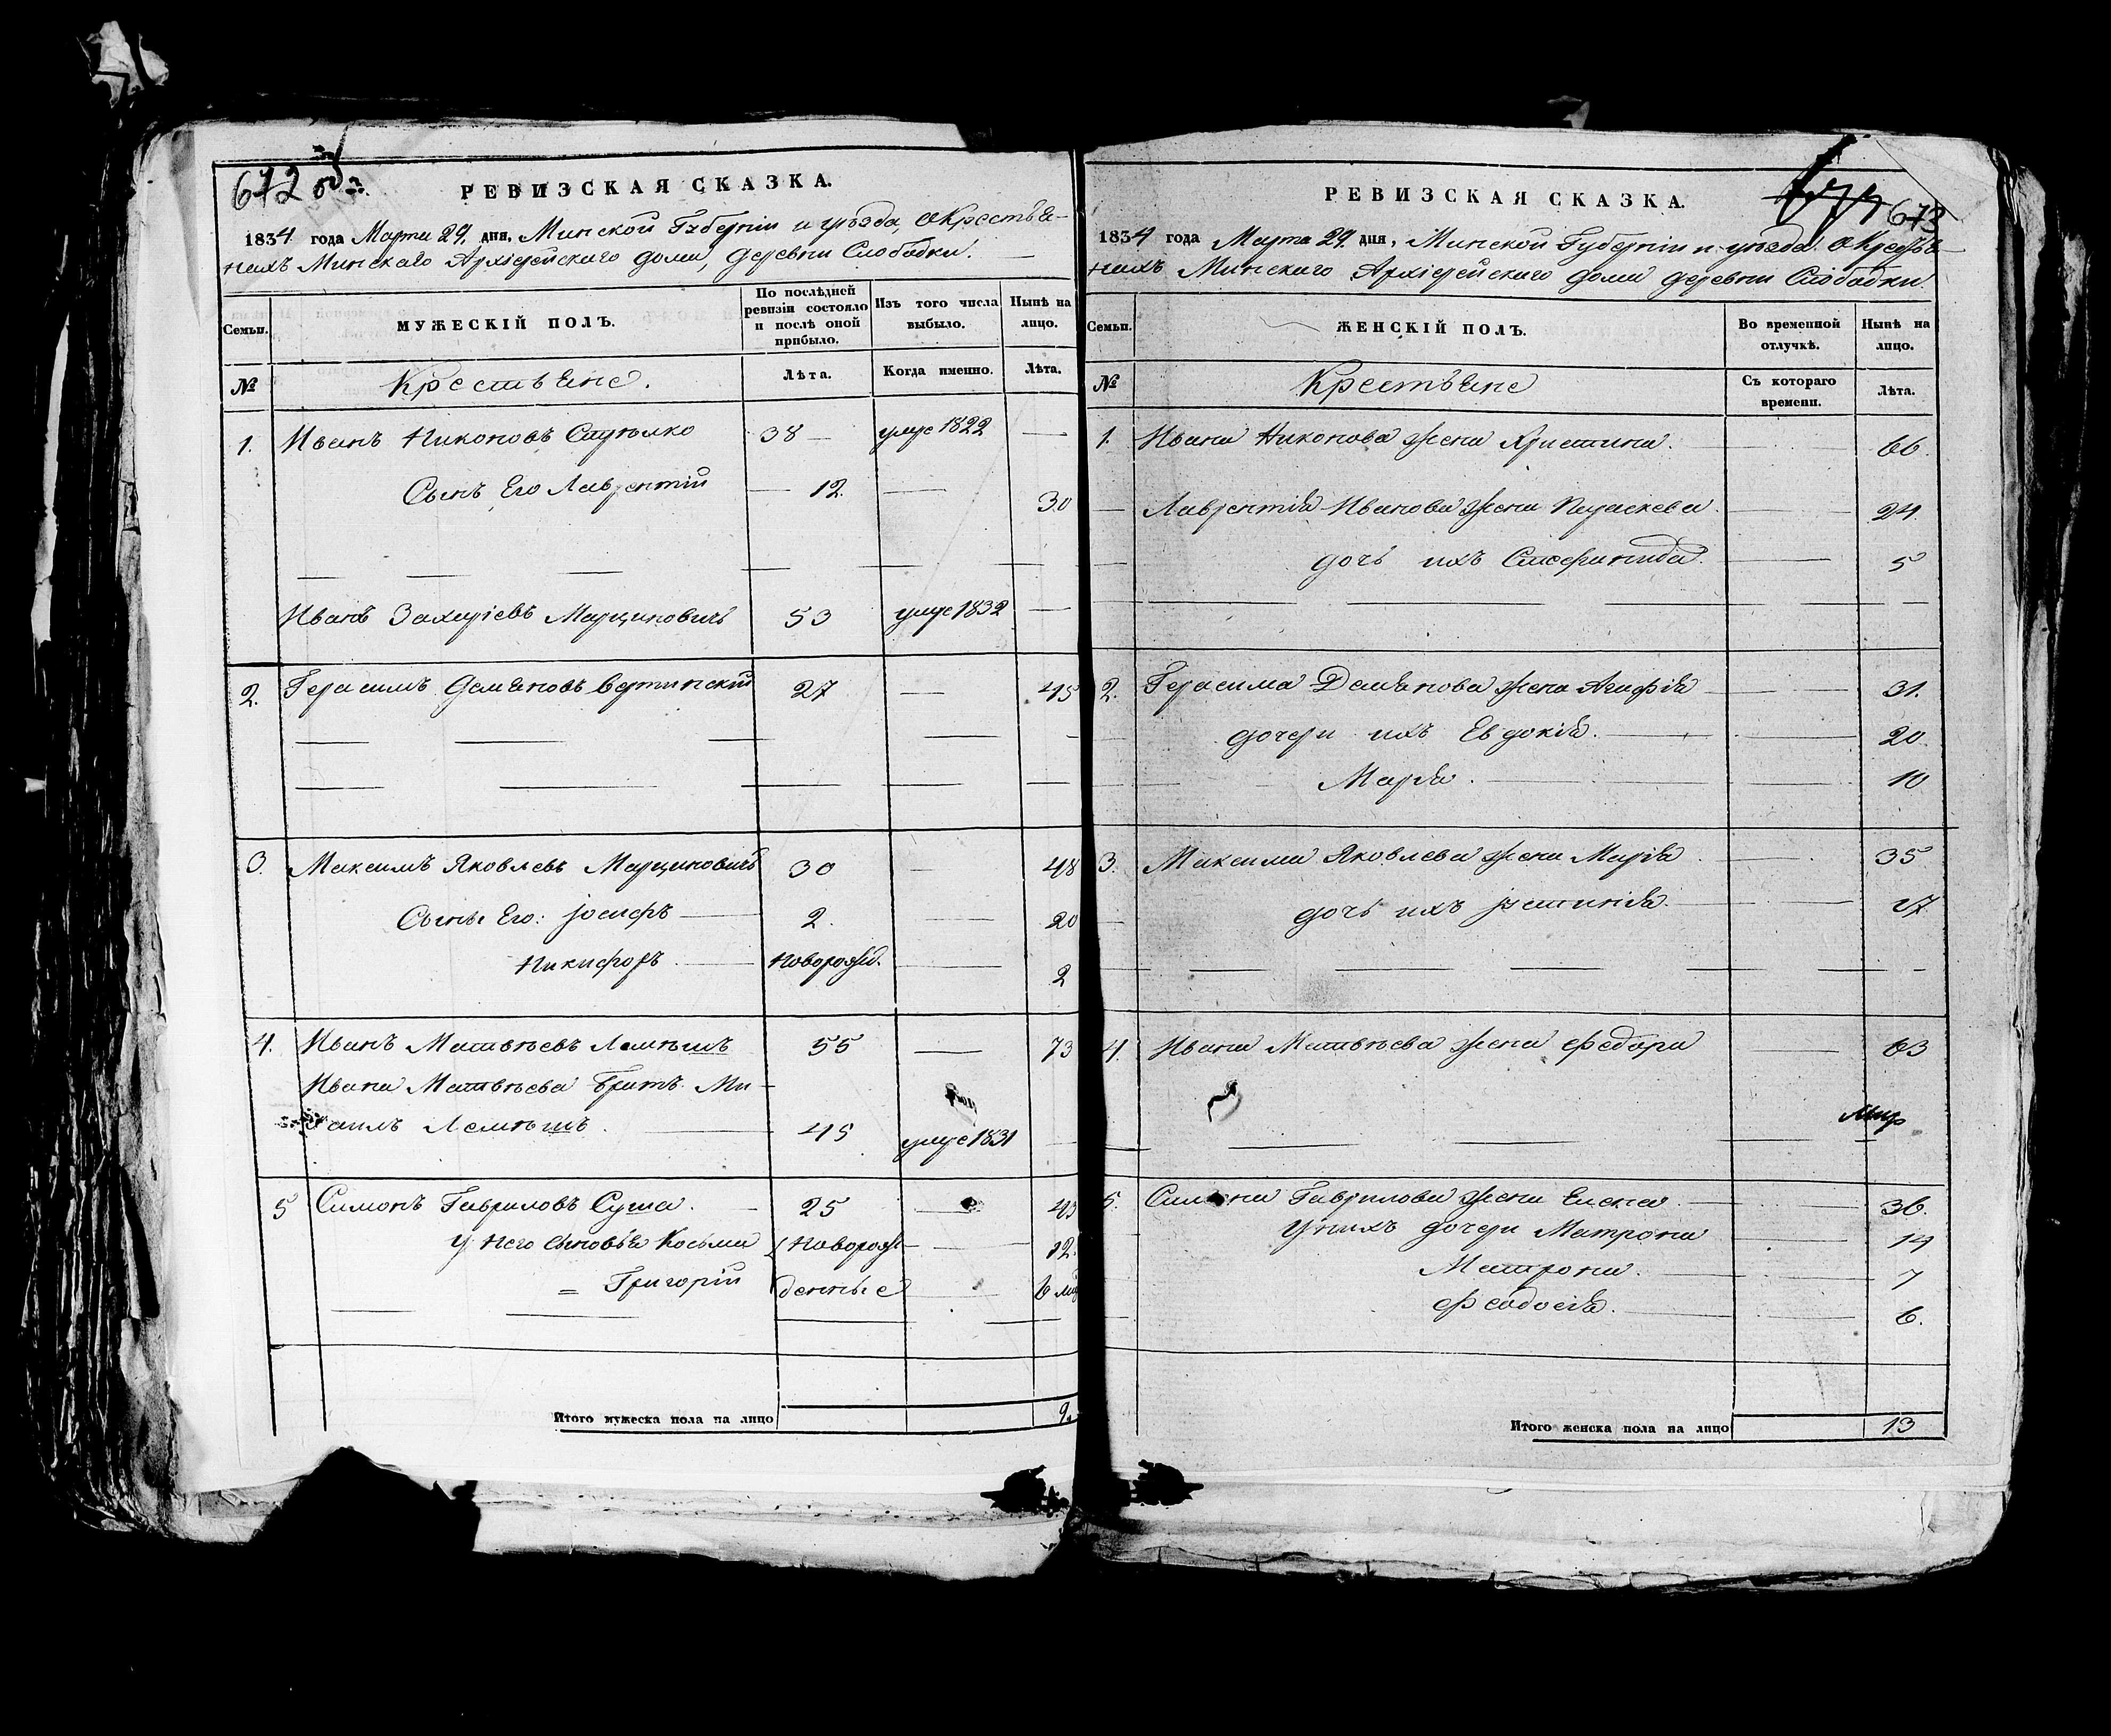 672 об.
РЕВИЗСКАЯ СКАЗКА.
1834 года Марта 24. дня, Минской Губерніи и уѣзда, о Крестья-
нахъ Минскаго Архіерейскаго дома, деревни Слободки.
Семьи.
МУЖЕСКІЙ ПОЛЪ.
По послѣдней ревизіи состояло и послѣ оной прибыло.
Изъ того числа выбыло.
Нынѣ на лицо.
№
Крестьяне.
Лѣта.
Когда именно.
Лѣта.
1. Иванъ Никоновъ 38 — умре 1822 —
Сынъ Его Лаврентій — 12. — 30
Иванъ Захаріевъ Марциновичъ 53 умре 1832 —
2. Герасимъ Демьяновъ Вертинскій 27 — 45
3. Максимъ Яковлевъ Марциновичъ 30 — 48
Сыны Его: Іосифъ — 2. — 20
Никифоръ. — Новорожд. — 2
4. Иванъ Матвѣевъ Лемѣшъ 55 — 73
Ивана Матвѣева братъ Ми-
хаилъ Лемѣшъ. — 45 умре 1831
5 Симонъ Гавриловъ Суша. — 25 — 43
У него сыновья Косьма Новорож- — 12.
= Григорій денные — 6 мѣ
Итого мужеска пола на лицо 9.
673
РЕВИЗСКАЯ СКАЗКА.
1834 года Марта 24. дня, Минской Губерніи и уѣзда о Крестья-
нахъ Минскаго Архіерейскаго дома деревни Слободки.
Семьи.
ЖЕНСКІЙ ПОЛЪ.
Во временной отлучкѣ.
Нынѣ на лицо.
№
Крестьяне
Съ котораго времени.
Лѣта.
1. Ивана Никонова жена Христина. — 66.
— Лаврентія Иванова жена Параскева. — 24.
дочь ихъ — 5
2. Герасима Демьянова жена Агафія — 31.
дочери ихъ Евдокія. — 20.
Марья. — 10
3. Максима Яковлева жена Марія — 35
дочь ихъ Іустинія. — 17
4. Ивана Матвѣева жена Федора — 63
5. Симона Гаврилова жена Елена — 36.
У нихъ дочери Матрона — 14
Матрона. — 7
Феодосія. — 6.
Итого женска пола на лицо 13